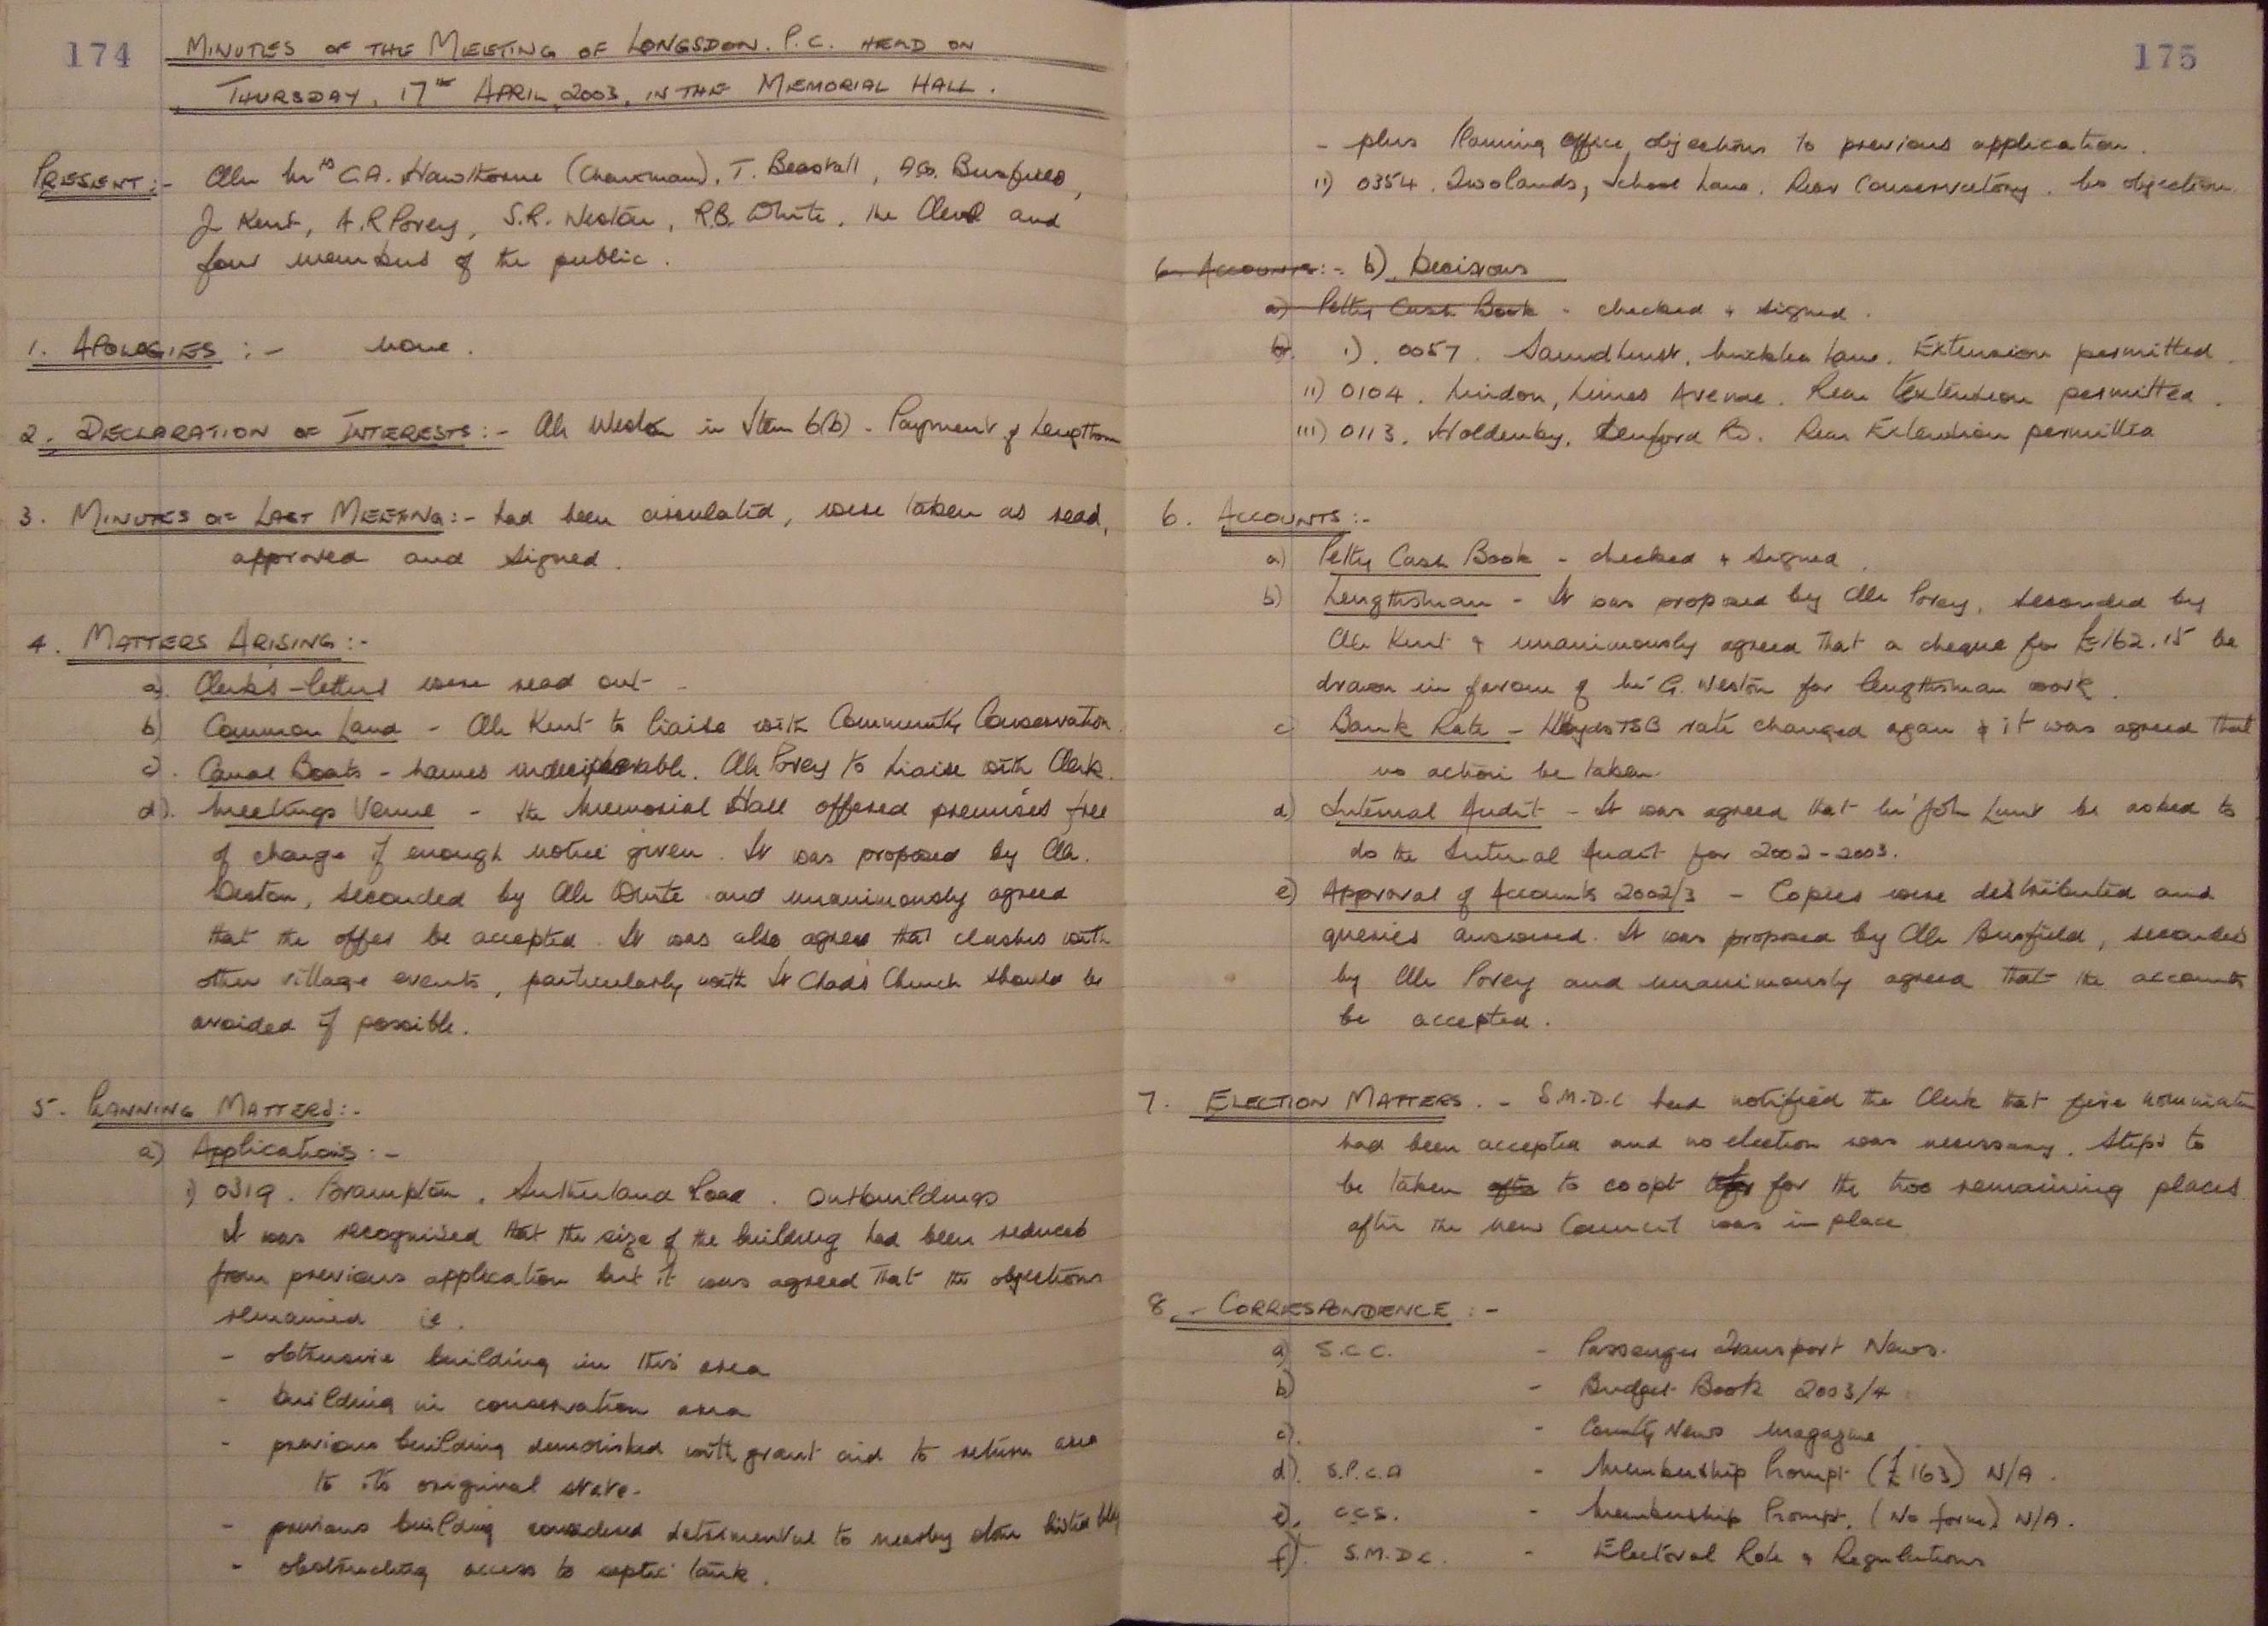 174
MINUTES OF THE MEETING OF LONGSDON. P.C. HELD ON
THURSDAY, 17TH APRIL, 2003, IN THE MEMORIAL HALL.
PRESENT:- Cllr Mrs C.A. Hawthorne (Chairman), T. Beastall, A.G. Busfield,
J Kent, A.R Povey, S.R. Weston, R.B. White, the Clerk and
four members of the public.
1. APOLOGIES :- None.
2. DECLARATION OF INTERESTS:- Cllr Weston in Item 6(b) - Payment of Lengthsman
3. MINUTES OF LAST MEETING:- had been circulated, were taken as read,
approved and signed.
4. MATTERS ARISING:-
a). Clerk's letters were read out
b) Common Land - Cllr Kent to liaise with Community Conservation.
c). Canal Boats - names undecipherable. Cllr Povey to liaise with Clerk.
d). Meetings Venue - the Memorial Hall offered premises free
of charge if enough notice given. It was proposed by Cllr.
Weston, seconded by Cllr White and unanimously agreed
that the offer be accepted. It was also agreed that clashes with
other village events, particularly with St Chad's Church should be
avoided if possible.
5. PLANNING MATTERS:-
a) Applications:-
i) 0319. Brampton, Sutherland Road. Outbuildings
It was recognised that the size of the building had been reduced
from previous application but it was agreed that the objections
remained ie.
- obtrusive building in this area
- building in conservation area
- previous building demolished with grant aid to return area
to its original state.
- previous building considered detrimental to nearby listed bldg
- obstructing access to septic tank.
175
- plus Planning Office objections to previous application.
ii) 0354. Twolands, School Lane. Rear Conservatory. No objection.
6. Accounts:- b) Decisions
a) Petty Cash Book - checked & signed.
b). i). 0057. Lane. Extension permitted.
ii) 0104. Lindon, Limes Avenue. Rear Extension permitted.
iii) 0113. Holdenby, Denford Rd. Rear Extension permitted
6. ACCOUNTS:-
a) Petty Cash Book - checked & signed.
b) Lengthsman - It was proposed by Cllr Povey, seconded by
Cllr Kent & unanimously agreed that a cheque for £162.15 be
drawn in favour of Mr G. Weston for lengthsman work.
c) Bank Rate - Lloyds TSB rate changed again & it was agreed that
no action be taken.
d) Internal Audit - It was agreed that Mr John Lunt be asked to
do the Internal Audit for 2002-2003.
e) Approval of Accounts 2002/3 - Copies were distributed and
queries answered. It was proposed by Cllr Busfield, seconded
by Cllr Povey and unanimously agreed that the accounts
be accepted.
7. ELECTION MATTERS. - S.M.D.C had notified the Clerk that five nominations
had been accepted and no election was necessary. Steps to
be taken after to coopt for the two remaining places
after the new Council was in place
8. CORRESPONDENCE :-
a) S.C.C. - Passenger Transport News.
b) - Budget Book 2003/4
c). - County News Magazine
d). S.P.C.A - Membership Prompt (£163) N/A.
e). C.C.S. - Membership Prompt. (No form) N/A.
f). S.M.D.C. - Electoral Role & Regulations